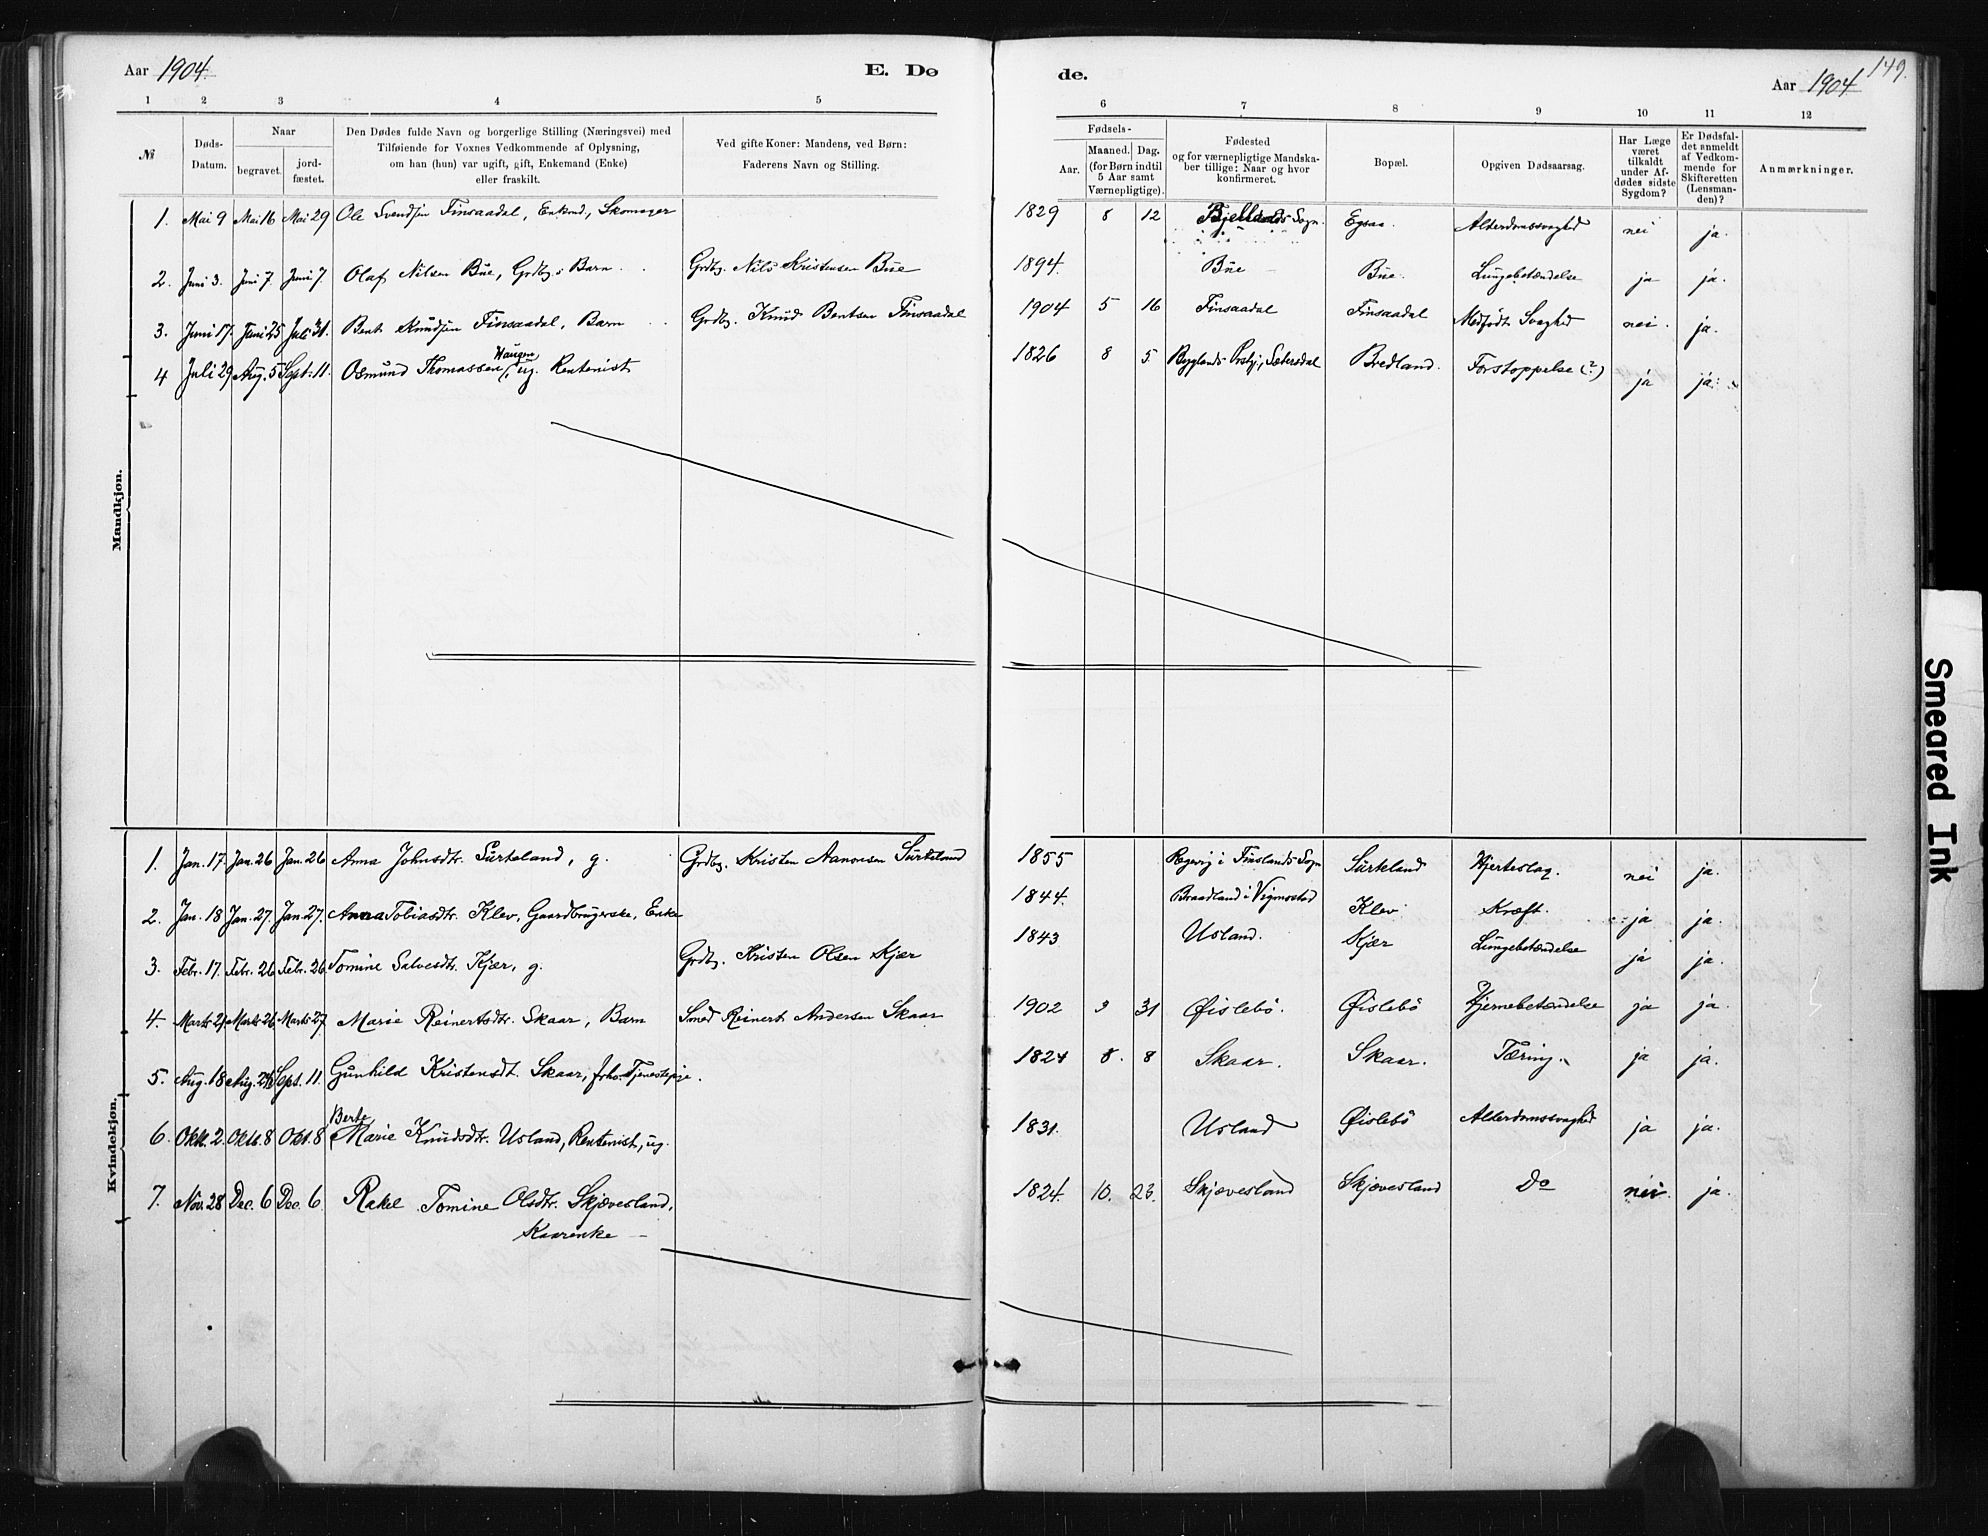 Aar 1904. E. Dø
de. Aar 1904 149.
1 2 3 4 5
6 7 8 9 10 11 12
№ Døds-Datum. Naar begravet. jordfæstet. Den Dødes fulde Navn og borgerlige Stilling (Næringsvei) med Tilføiende for Voxnes Vedkommende af Oplysning, om han (hun) var ugift, gift, Enkemand (Enke) eller fraskilt. Ved gifte Koner: Mandens, ved Børn: Faderens Navn og Stilling.
Fødsels- Aar. Maaned. Dag. (for Børn indtil 5 Aar samt Værnepligtige). Fødested og for værnepligtige Mandskaber tillige: Naar og hvor konfirmeret. Bopæl. Opgiven Dødsaarsag. Har Læge været tilkaldt under Afdødes sidste Sygdom? Er Dødsfaldet anmeldt af Vedkommende for Skifteretten (Lensmanden)? Anmærkninger.
Mandkjøn.
1. Mai 9 Mai 16 Mai 29 Ole Svendsen Finsaadal, Enkemd, Skomager 1829 8 12 Bjellands Sogn. Egsaa. Alderdomssvaghed nei ja.
2. Juni 3. Juni 7. Juni 7. Olaf Nilsen Bue, Grdbg.s Barn. Grdbg. Nils Kristensen Bue 1894. Bue Bue. Lungebetændelse ja ja.
3. Juni 17. Juni 25 Juli 31. Bent Knudsen Finsaadal, Barn Grdbg. Knud Bentsen Finsaadal 1904 5 16 Finsaadal Finsaadal Medfødt Svaghed nei. ja.
4 Juli 29 Aug. 5 Sept. 11. Osmund Thomassen Haugen, ug. Rentenist 1826 8 5. Byglands Prstgj., Sætersdal Bredland. Forstoppelse (?) ja ja.
Kvindekjøn.
1. Jan. 17. Jan. 26 Jan. 26 Anna Johnsdtr. Surteland, g. Grdbg. Kristen Aanonsen Surteland 1855 i Finslands Sogn Surteland Hjerteslag. nei ja.
2. Jan. 18 Jan. 27. Jan. 27. Anna Tobiasdtr. Klev, Gaardbrugerske, Enke 1844. Braadland i Vigmostad Klev Kræft. ja ja.
3. Febr. 17. Febr. 26 Febr. 26 Tomine Salvesdtr. Kjær, g. Grdbg. Kristen Olsen Kjær 1843 Usland. Kjær Lungebetændelse ja ja.
4. Marts 21 Marts 26 Marts 27 Marie Reinertsdtr. Skaar, Barn Smed Reinert Andersen Skaar 1902 3 31 Øislebø. Øislebø Hjernebetændelse ja ja.
5. Aug. 18 Aug. 24 Sept. 11. Gunhild Kristensdt. Skaar, fhv. Tjenestepige. 1824 8. 8 Skaar. Skaar. Tæring. ja ja.
6. Okt. 2. Oktb. 8 Okt. 8 Berte Marie Knudsdtr. Usland, Rentenist, ug. 1831. Usland Øislebø Alderdomssvaghed ja ja.
7. Nov. 28 Dec. 6 Dec. 6. Rakel Tomine Olsdtr. Skjævesland, 1824. 10. 23. Skjævesland Skjævesland Do nei. ja.
Kaarenke
Smeared Ink